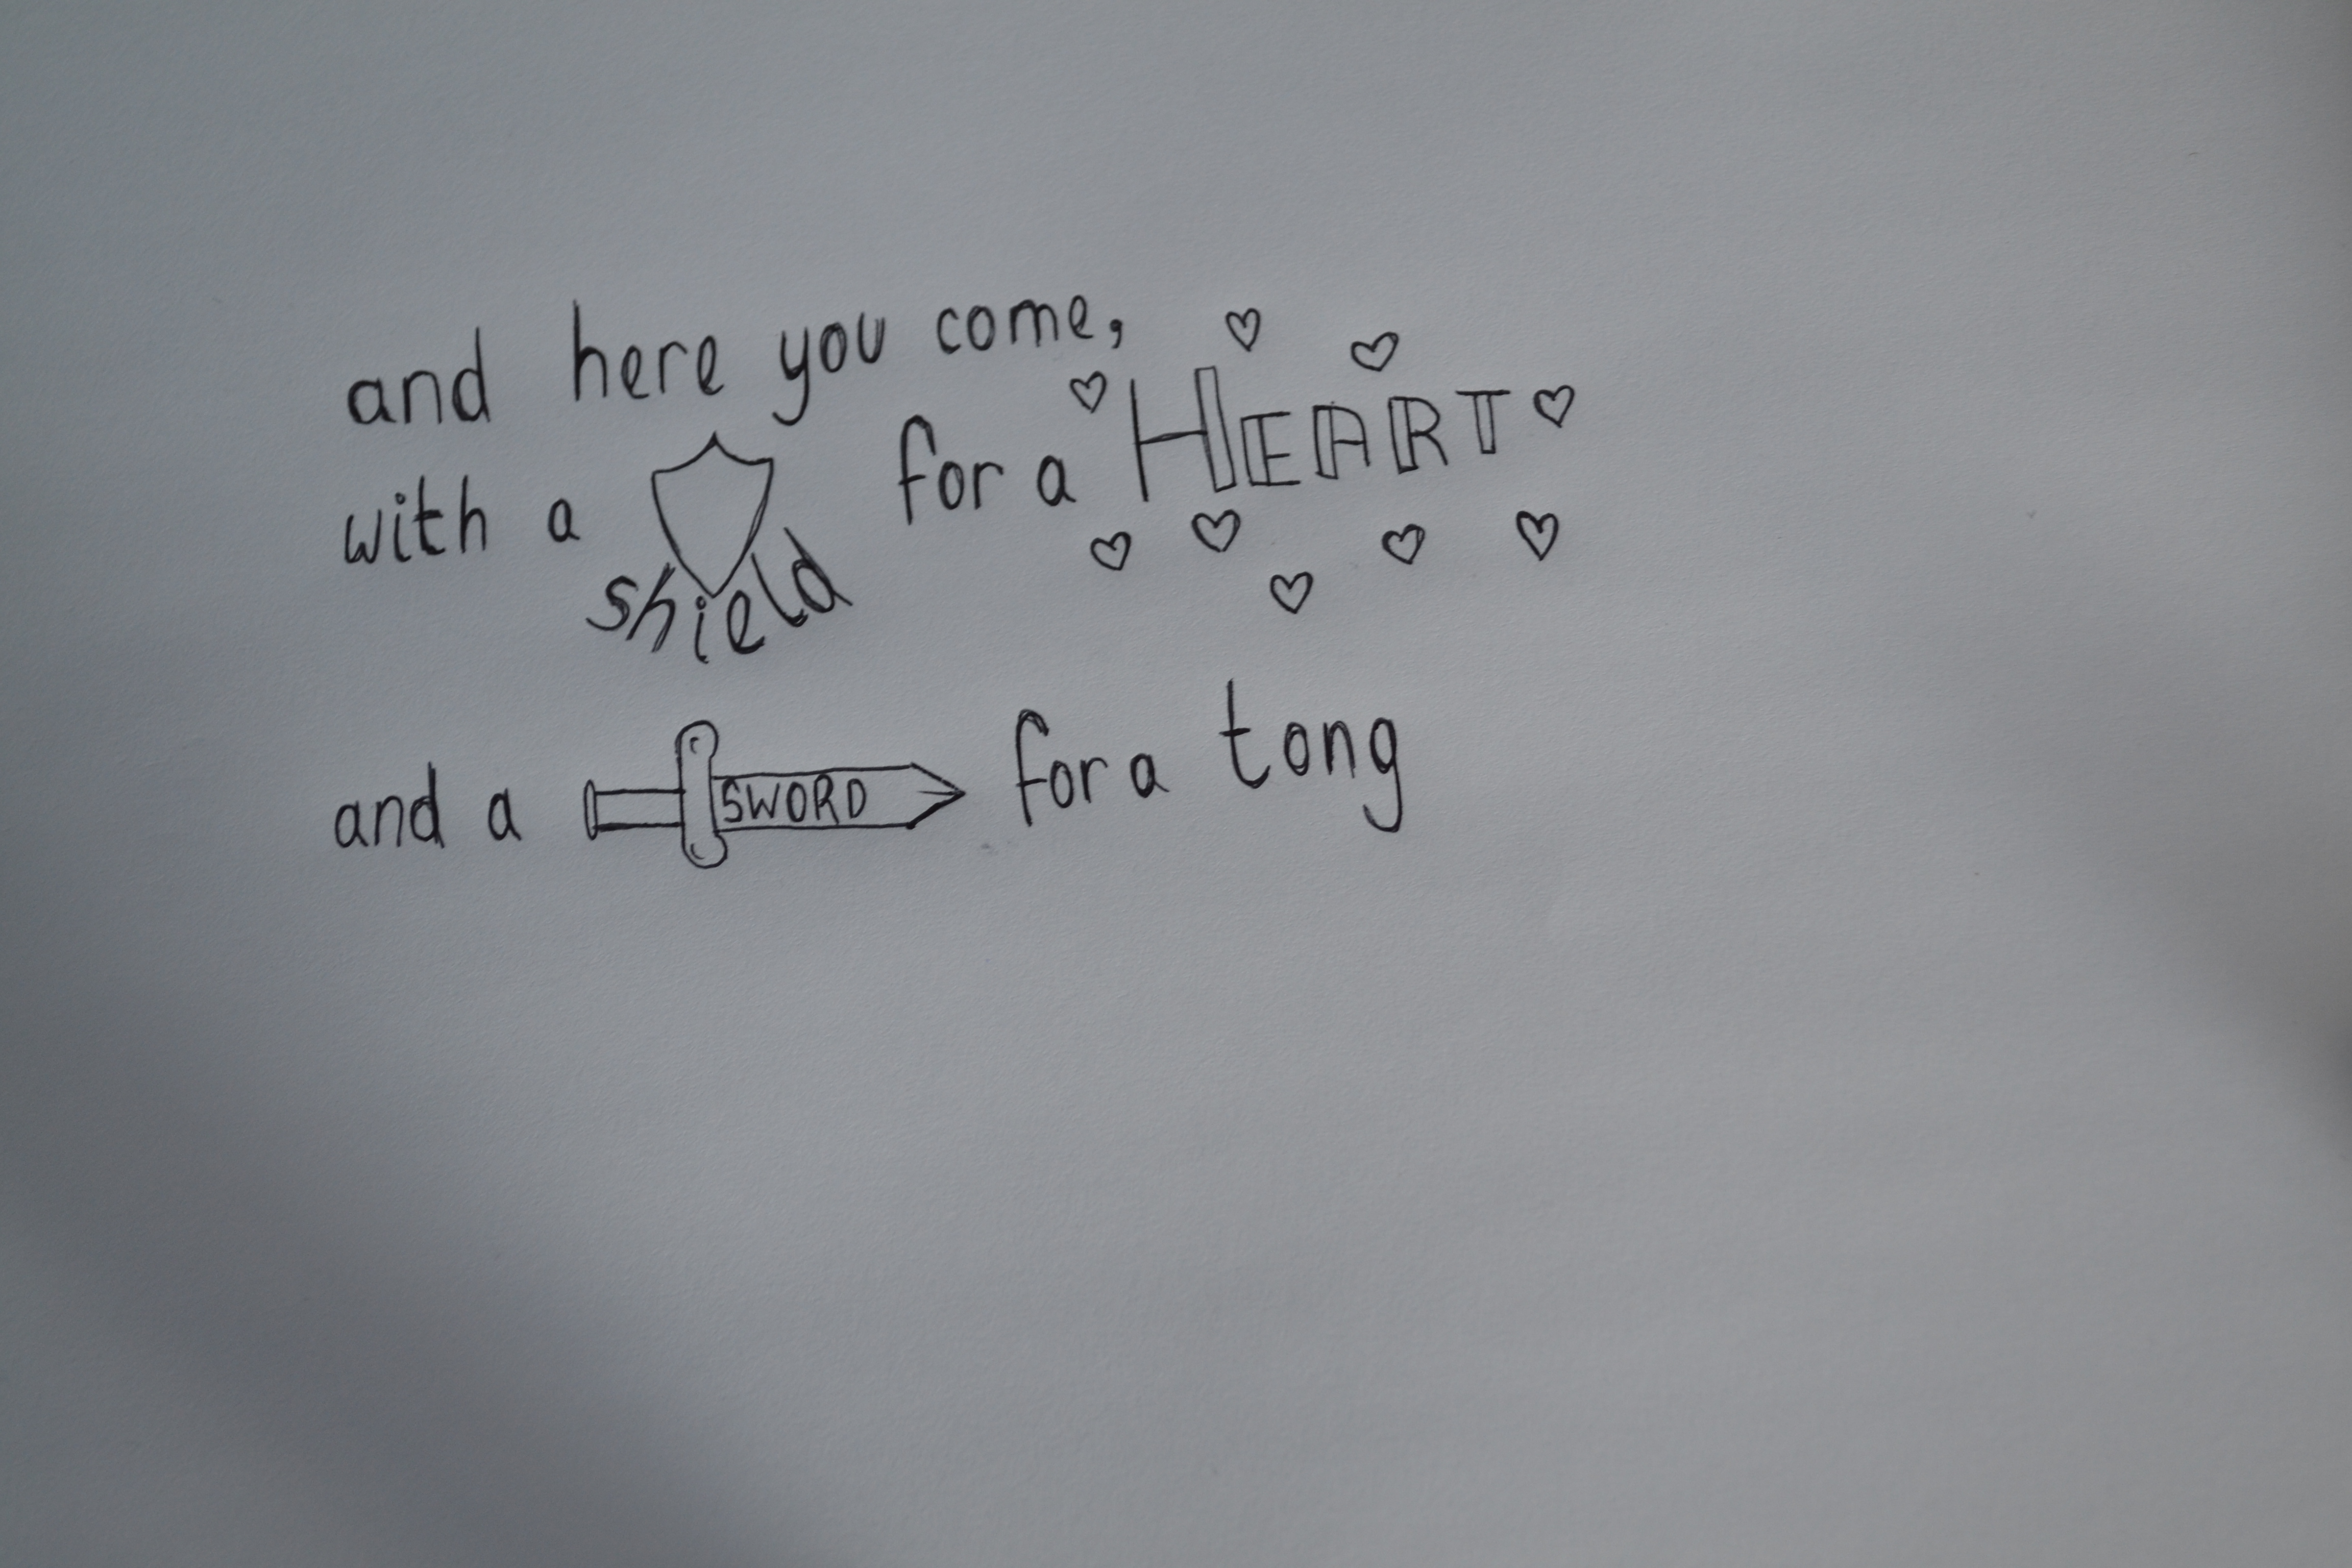 and here you come,
with a shield for a HEART
and a SWORD for a tong